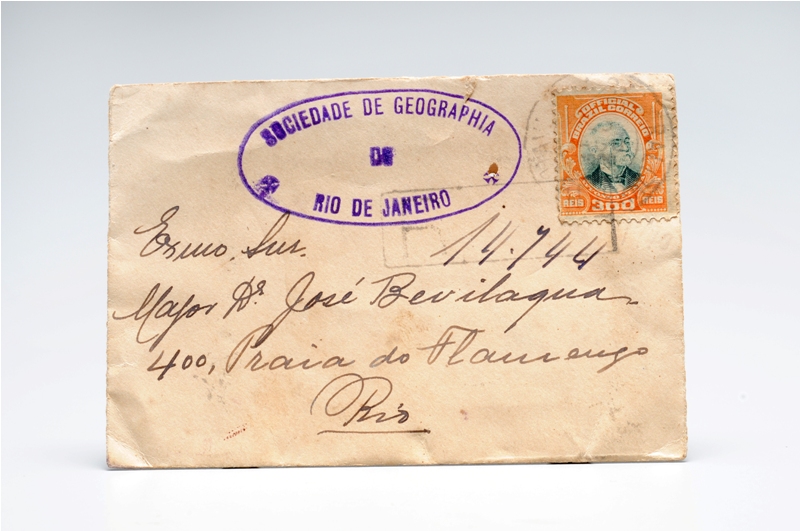 SOCIEDADE DE GEOGRAPHIA
DE
RIO DE JANEIRO
OFFICIAL
BRAZIL CORREIO
REIS 300 REIS
R 14.744
Exmo. Snr.
Major Dr. José Bevilaqua
400, Praia do Flamengo
Rio